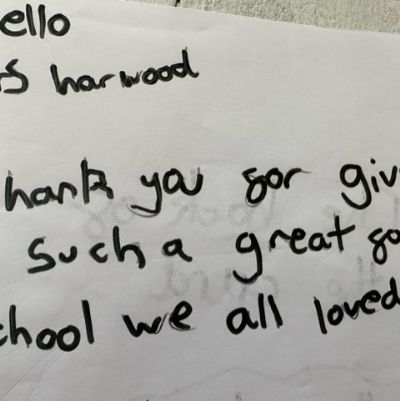 ello
rs harwood
hank you for giv
such a great so
chool we all loved